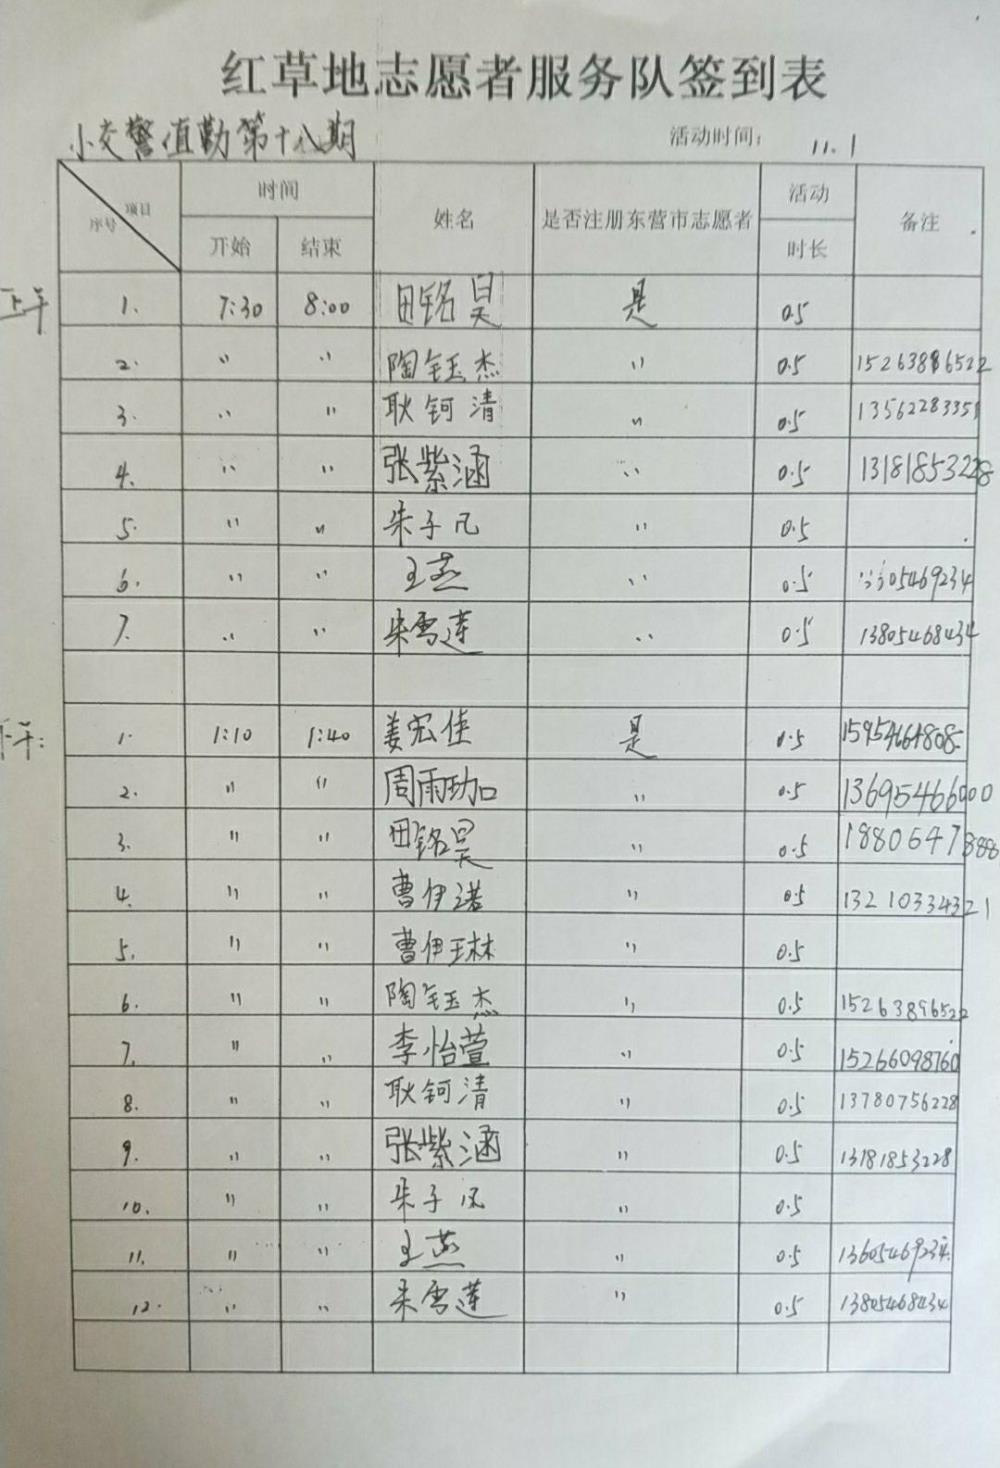 红草地志愿者服务队签到表
小交警值勤第十八期 活动时间: 11.1
序号 项目 时间 开始 结束 姓名 是否注册东营市志愿者 活动 时长 备注
上午 1. 7:30 8:00 田铭昊 是 0.5
2. 〃 〃 陶钰杰 〃 0.5 15263896522
3. 〃 〃 耿钶清 〃 0.5 13562283351
4. 〃 〃 张紫涵 〃 0.5 13181853228
5. 〃 〃 朱子凡 〃 0.5
6. 〃 〃 王燕 〃 0.5
7. 〃 〃 朱雪莲 〃 0.5 13805468434
下午: 1. 1:10 1:40 姜宏佳 是 0.5
2. 〃 〃 周雨珈 〃 0.5 13695466000
3. 〃 〃 田铭昊 〃 0.5 18806471888
4. 〃 〃 曹伊诺 〃 0.5 13210334321
5. 〃 〃 曹伊琳 〃 0.5
6. 〃 〃 陶钰杰 〃 0.5 15263896522
7. 〃 〃 李怡萱 〃 0.5 15266098760
8. 〃 〃 耿钶清 〃 0.5 13780756228
9. 〃 〃 张紫涵 〃 0.5 13181853228
10. 〃 〃 朱子凡 〃 0.5
11. 〃 〃 王燕 〃 0.5 13605469234
12. 〃 〃 朱雪莲 〃 0.5 13805468434